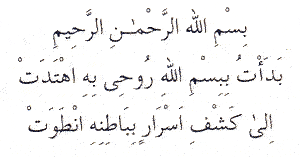 بِسْمِ اللهِ الرَّحْمٰنِ الرَّحِيمِ
بَدَأْتُ بِبِسْمِ اللهِ رُوحِى بِهِ اهْتَدَتْ
اِلىٰ كَشْفِ اَسْرَارٍ بِبَاطِنِهِ انْطَوَتْ